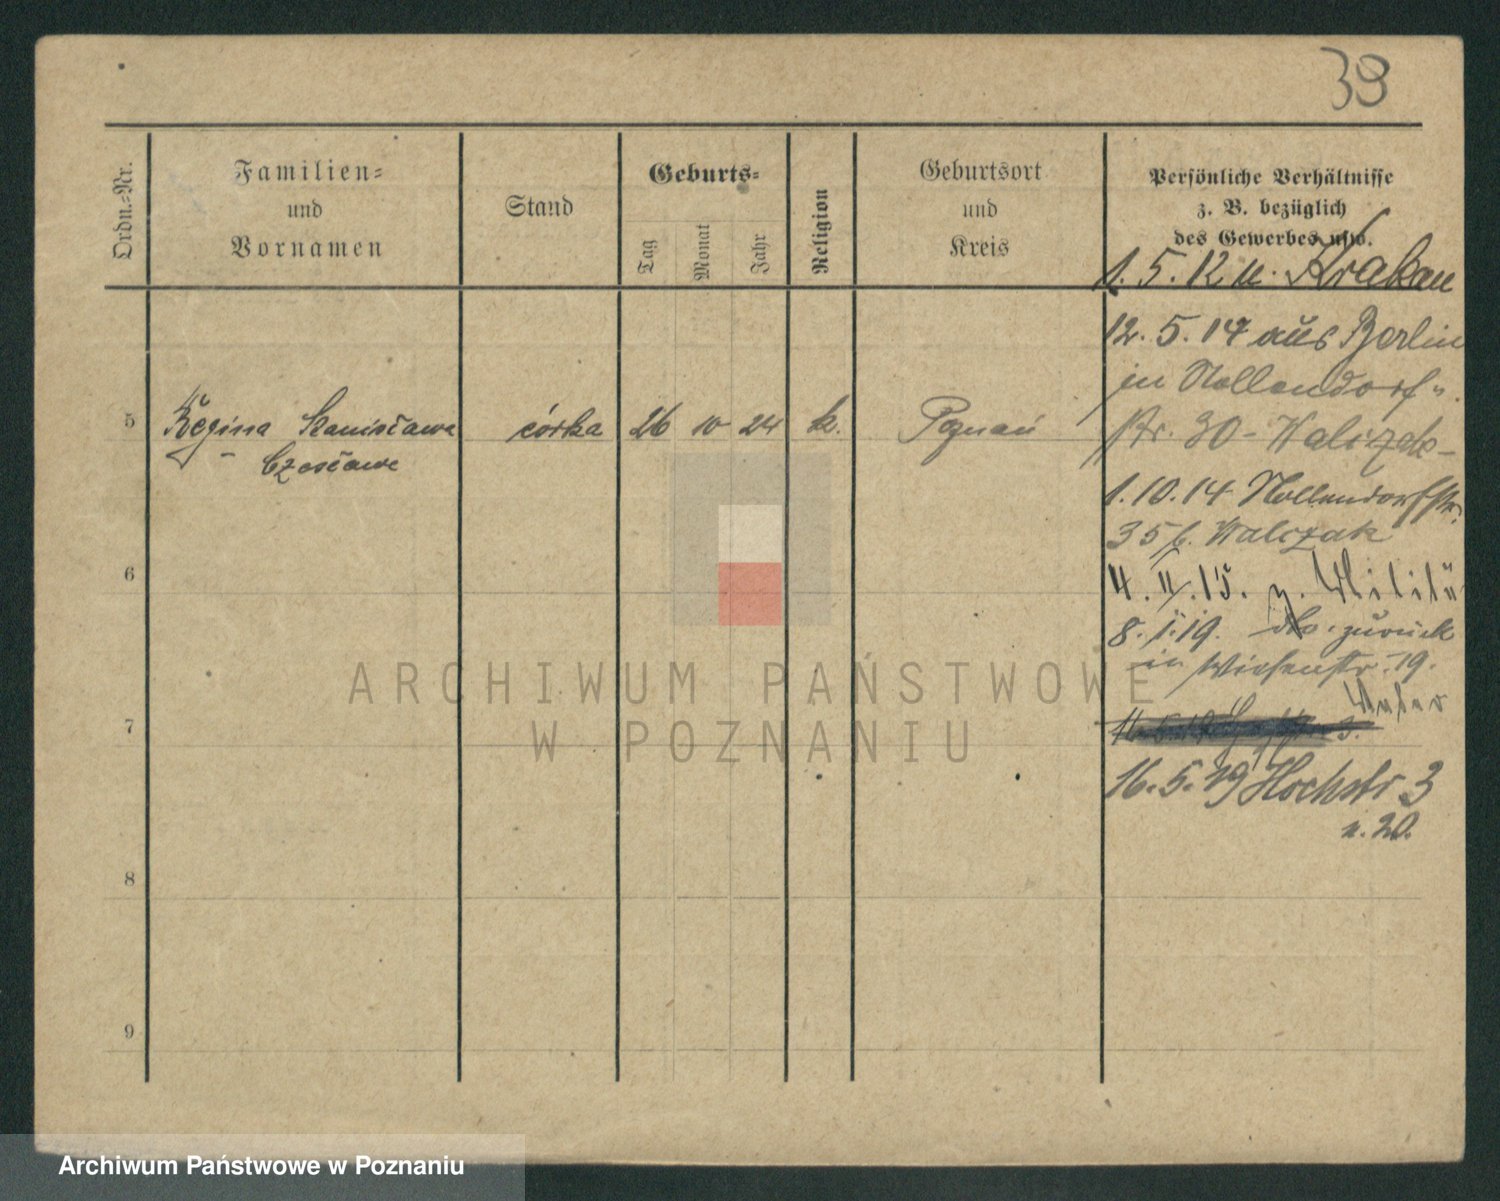 39
Ordn.-Nr.
Familien-
und
Vornamen
Stand
Geburts-
Tag
Monat
Jahr
Religion
Geburtsort
und
Kreis
Persönliche Verhältnisse
z. B. bezüglich
des Gewerbes usw.
1. 5. 12 n. Krakau
12. 5. 14 aus Berlin
in Nollendorf-
str. 30 - Walczak -
5 Regina Stanisława córka 26 10 24 k. Poznań
- Czesława
1. 10. 14 Nollendorfstr.
35 b. Walczak
6
4. II. 15. z. Militär
8. 1. 19. zurück
in Wiesenstr. 19.
7
16. 5. 19 Hochstr 3
n. 20.
8
9
ARCHIWUM PAŃSTWOWE
W POZNANIU
Archiwum Państwowe w Poznaniu